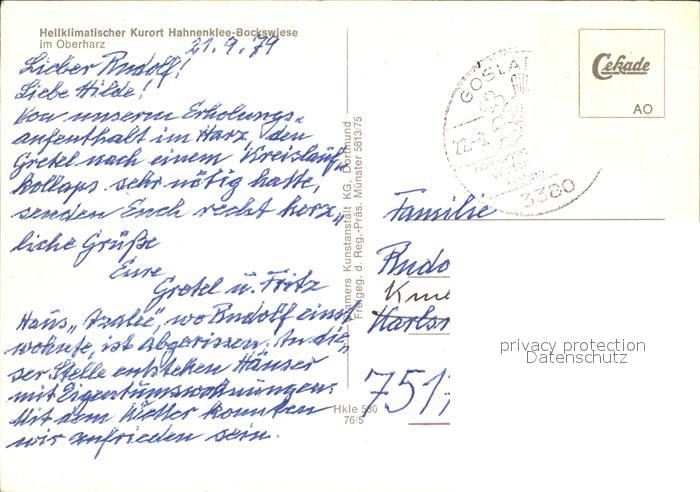 Heilklimatischer Kurort Hahnenklee-Bockswiese
im Oberharz
21.9.79
Lieber Rudolf!
Liebe Hilde!
Von unserm Erholungs-
aufenthalt im Harz, den
Gretel nach einem Kreislauf-
kollaps sehr nötig hatte,
senden Euch recht herz-
liche Grüße
Eure
Gretel u. Fritz
Haus „Azalee", wo Rudolf einst
wohnte, ist abgerissen. An die-
ser Stelle entstehen Häuser
mit Eigentumswohnungen.
Mit dem Wetter konnten
wir zufrieden sein.
Cramers Kunstanstalt KG, Dortmund
Freigeg. d. Reg.-Präs. Münster 5813/75
Hkle 530
76/5
Cekade
AO
GOSLA
22.-9.
3380
Familie
Rudo
Karlsr
751
privacy protection
Datenschutz